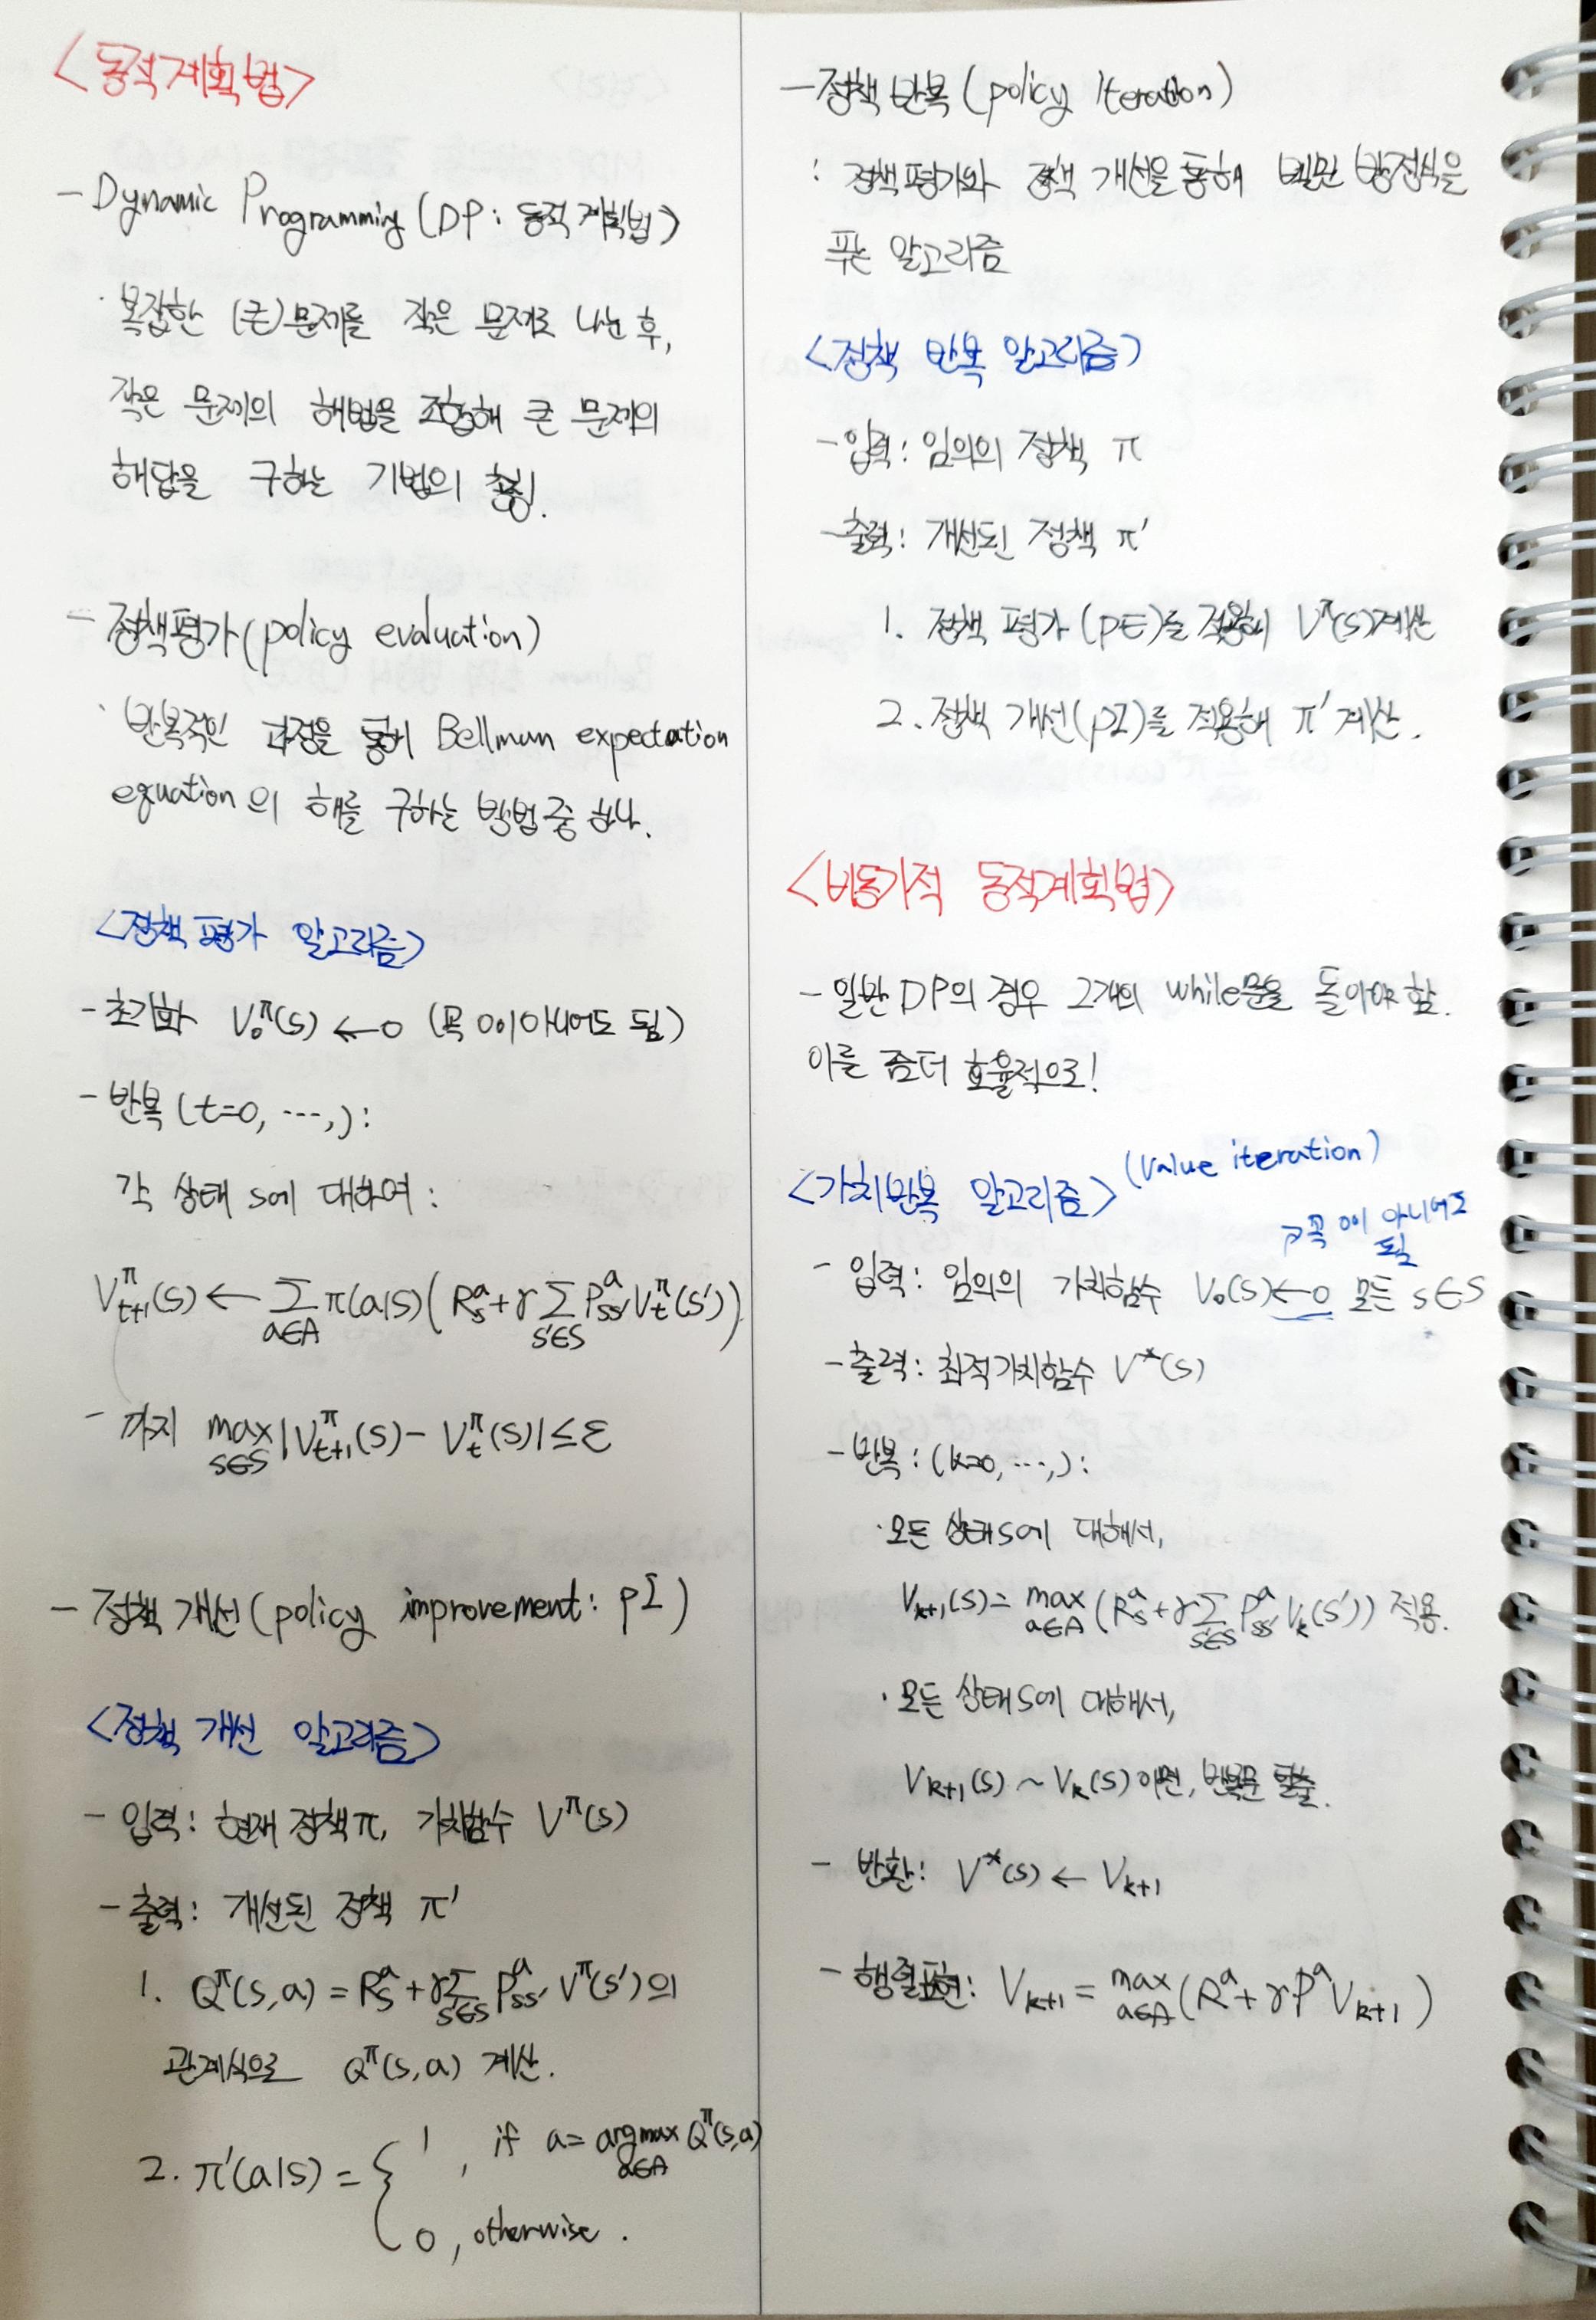 <동적계획법>
- Dynamic Programming (DP: 동적 계획법)
· 복잡한 (큰)문제를 작은 문제로 나눈 후,
작은 문제의 해법을 조합해 큰 문제의
해답을 구하는 기법의 총칭.
- 정책평가(policy evaluation)
· 반복적인 과정을 통해 Bellman expectation
equation의 해를 구하는 방법 중 하나.
<정책 평가 알고리즘>
- 초기화 V₀^π(s) ← 0 (꼭 0이 아니어도 됨)
- 반복 (t=0, ⋯,):
각 상태 s에 대하여:
V_{t+1}^π(s) ← Σ_{a∈A} π(a|s)(R_s^a + γ Σ_{s'∈S} P_{ss'}^a V_t^π(s'))
- 까지 max_{s∈S} |V_{t+1}^π(s) - V_t^π(s)| ≤ ε
- 정책 개선(policy improvement: PI)
<정책 개선 알고리즘>
- 입력: 현재 정책π, 가치함수 V^π(s)
- 출력: 개선된 정책 π'
1. Q^π(s,a) = R_s^a + γ Σ_{s'∈S} P_{ss'}^a V^π(s')의
관계식으로 Q^π(s,a) 계산.
2. π'(a|s) = { 1, if a = argmax_{a∈A} Q^π(s,a)
0, otherwise.
- 정책 반복 (policy iteration)
: 정책평가와 정책 개선을 통해 벨만 방정식을
푸는 알고리즘
<정책 반복 알고리즘>
- 입력: 임의의 정책 π
- 출력: 개선된 정책 π'
1. 정책 평가(PE)를 적용해 V^π(s)계산
2. 정책 개선(PI)를 적용해 π' 계산.
<비동기적 동적계획법>
- 일반 DP의 경우 2개의 while문을 돌아야 함.
이를 좀더 효율적으로!
<가치반복 알고리즘> (Value iteration)
↗꼭 0이 아니어도
됨
- 입력: 임의의 가치함수 V₀(s)←0 모든 s∈S
- 출력: 최적가치함수 V*(s)
- 반복: (k=0, ⋯,):
· 모든 상태s에 대해서,
V_{k+1}(s) = max_{a∈A} (R_s^a + γ Σ_{s'∈S} P_{ss'}^a V_k(s')) 적용.
· 모든 상태s에 대해서,
V_{k+1}(s) ~ V_k(s) 이면, 반복문 탈출.
- 반환: V*(s) ← V_{k+1}
- 행렬표현: V_{k+1} = max_{a∈A} (R^a + γP^a V_{k+1})